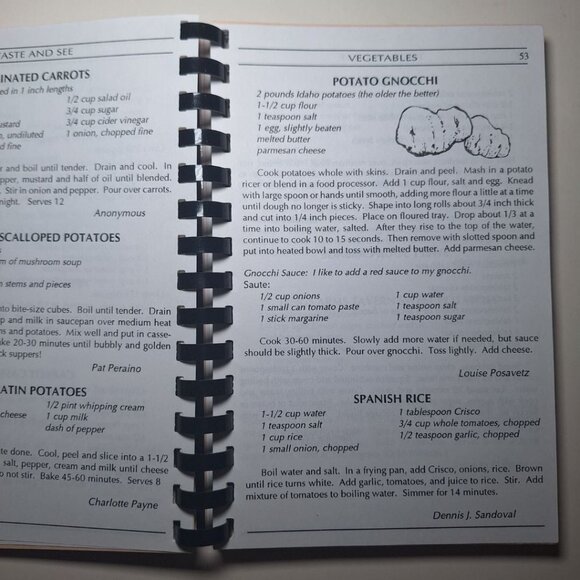 TASTE AND SEE
INATED CARROTS
ed in 1 inch lengths
1/2 cup salad oil
3/4 cup sugar
ustard
3/4 cup cider vinegar
n, undiluted
1 onion, chopped fine
d fine
r and boil until tender. Drain and cool. In
pper, mustard and half of oil until blended.
Stir in onion and pepper. Pour over carrots.
night. Serves 12
Anonymous
SCALLOPED POTATOES
s
m of mushroom soup
n stems and pieces
nto bite-size cubes. Boil until tender. Drain
p and milk in saucepan over medium heat
ns and potatoes. Mix well and put in casse-
ke 20-30 minutes until bubbly and golden
ck suppers!
Pat Peraino
ATIN POTATOES
1/2 pint whipping cream
cheese
1 cup milk
dash of pepper
te done. Cool, peel and slice into a 1-1/2
salt, pepper, cream and milk until cheese
o not stir. Bake 45-60 minutes. Serves 8
Charlotte Payne
VEGETABLES 53
POTATO GNOCCHI
2 pounds Idaho potatoes (the older the better)
1-1/2 cup flour
1 teaspoon salt
1 egg, slightly beaten
melted butter
parmesan cheese
Cook potatoes whole with skins. Drain and peel. Mash in a potato
ricer or blend in a food processor. Add 1 cup flour, salt and egg. Knead
with large spoon or hands until smooth, adding more flour a little at a time
until dough is no longer sticky. Shape into long rolls about 3/4 inch thick
and cut into 1/4 inch pieces. Place on floured tray. Drop about 1/3 at a
time into boiling water, salted. After they rise to the top of the water,
continue to cook 10 to 15 seconds. Then remove with slotted spoon and
put into heated bowl and toss with melted butter. Add parmesan cheese.
Gnocchi Sauce: I like to add a red sauce to my gnocchi.
Saute:
1/2 cup onions
1 cup water
1 small can tomato paste
1 teaspoon salt
1 stick margarine
1 teaspoon sugar
Cook 30-60 minutes. Slowly add more water if needed, but sauce
should be slightly thick. Pour over gnocchi. Toss lightly. Add cheese.
Louise Posavetz
SPANISH RICE
1-1/2 cup water
1 tablespoon Crisco
1 teaspoon salt
3/4 cup whole tomatoes, chopped
1 cup rice
1/2 teaspoon garlic, chopped
1 small onion, chopped
Boil water and salt. In a frying pan, add Crisco, onions, rice. Brown
until rice turns white. Add garlic, tomatoes, and juice to rice. Stir. Add
mixture of tomatoes to boiling water. Simmer for 14 minutes.
Dennis J. Sandoval